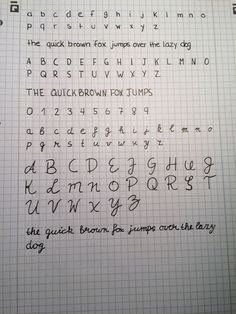 a b c d e f g h i j k l m n o
p q r s t u v w x y z
the quick brown fox jumps over the lazy dog
A B C D E F G H I J K L M N O
P Q R S T U V W X Y Z
THE QUICK BROWN FOX JUMPS
0 1 2 3 4 5 6 7 8 9
a b c d e f g h i j k l m n o
p q r s t u v w x y z
A B C D E F G H I J
K L M N O P Q R S T
U V W X Y Z
the quick brown fox jumps over the lazy
dog